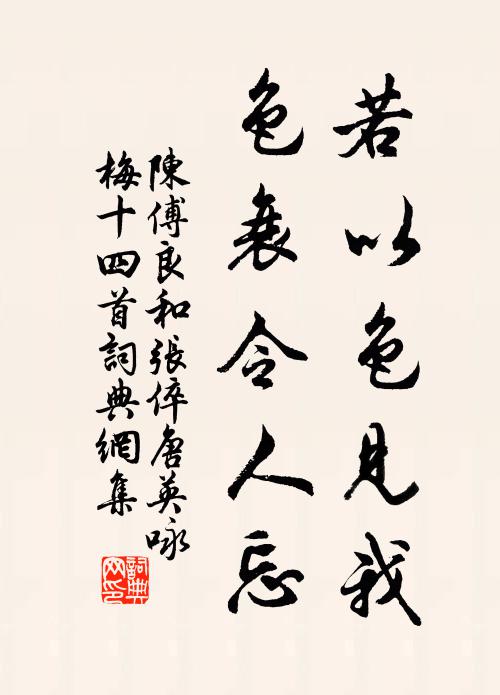 若以色見我
色衰令人忘
陳傅良和張倅唐英咏
梅十四首詞典網集
詞典网印